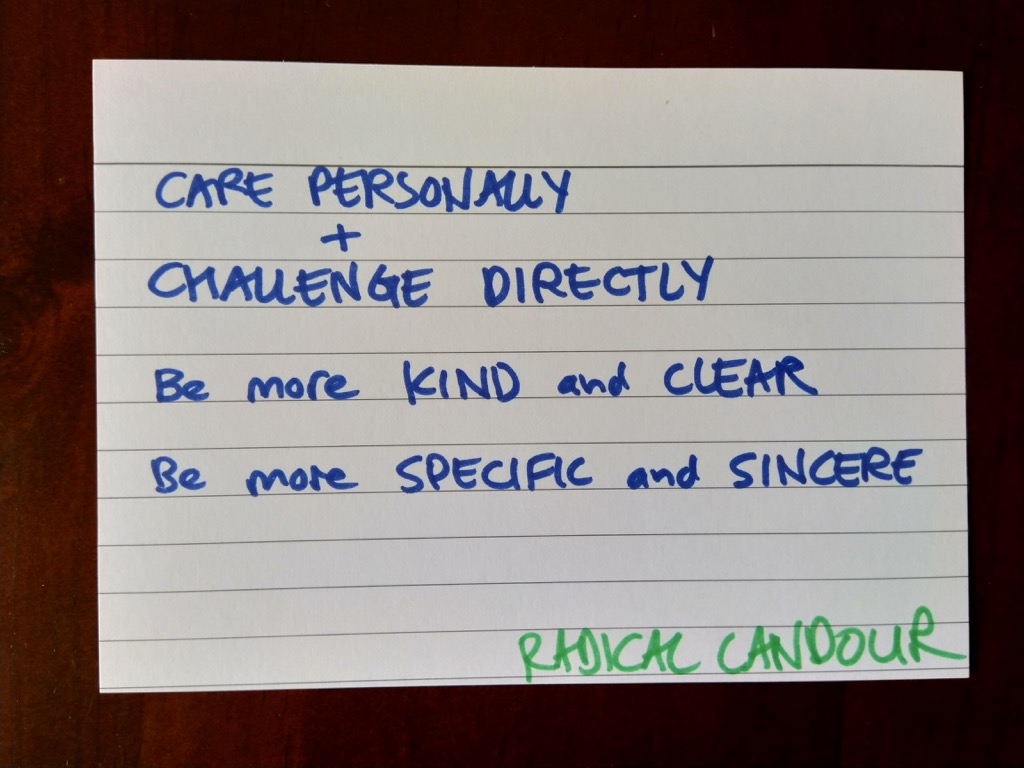 CARE PERSONALLY
+
CHALLENGE DIRECTLY
Be more KIND and CLEAR
Be more SPECIFIC and SINCERE
RADICAL CANDOUR